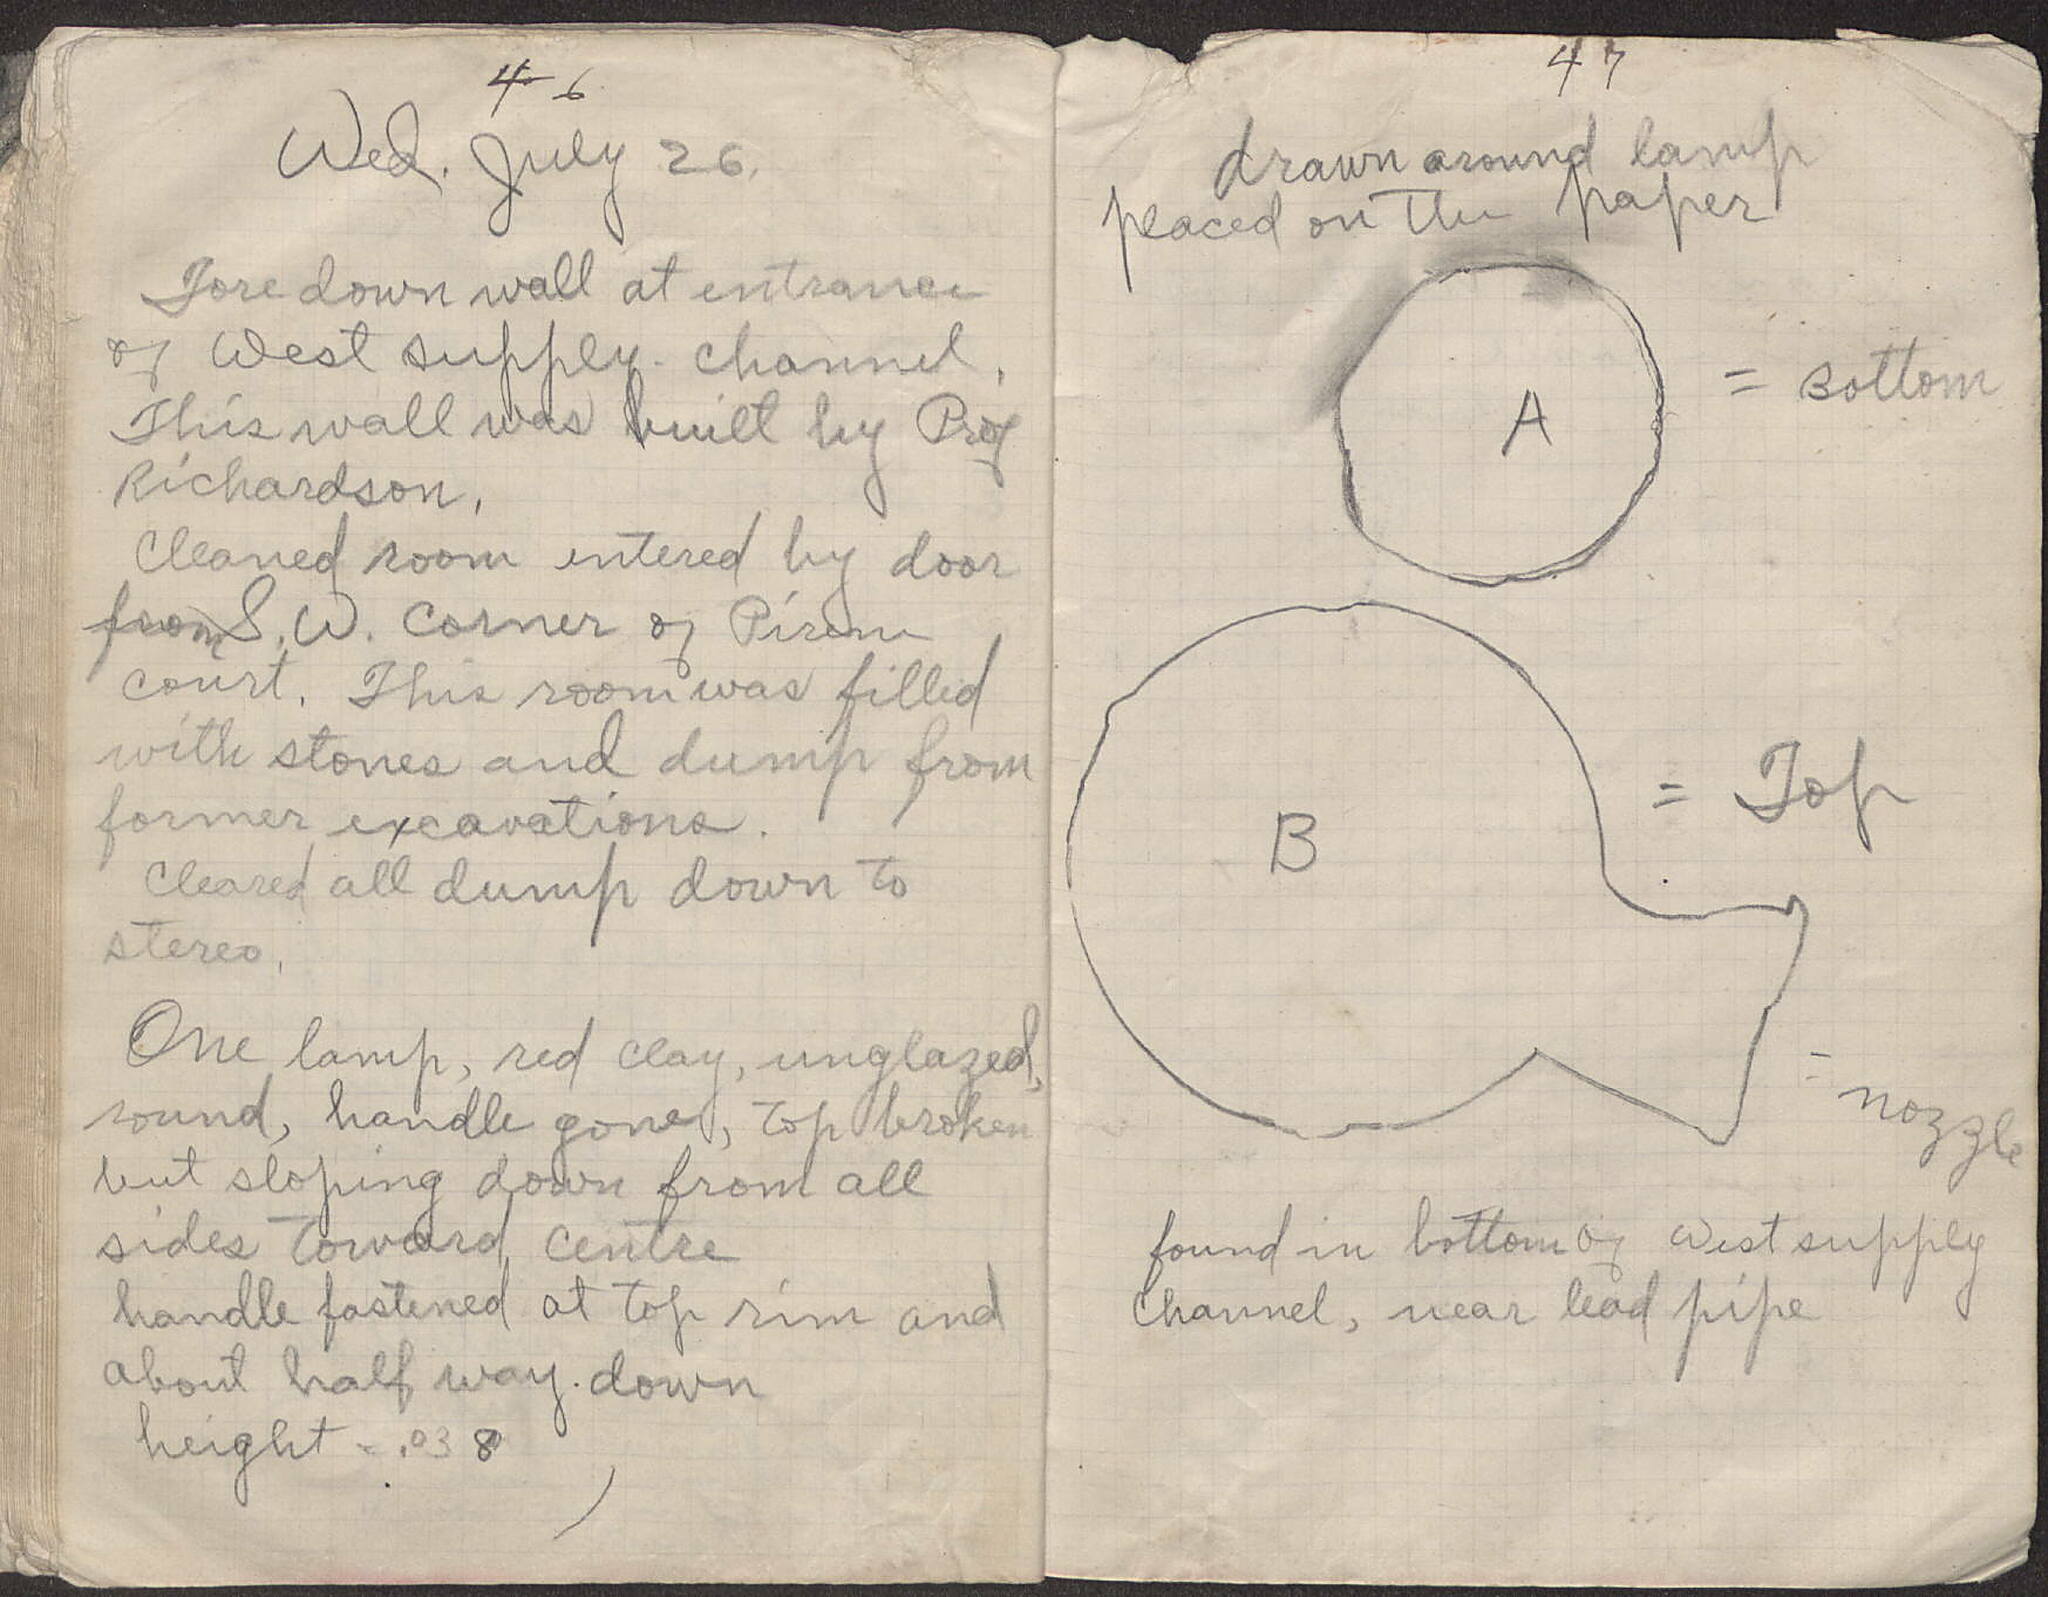 46
Wed. July 26.
Tore down wall at entrance
of West supply-channel.
This wall was built by Prof
Richardson.
Cleaned room entered by door
from S.W. corner of Pirene
court. This room was filled
with stones and dump from
former excavations.
Cleared all dump down to
stereo.
One lamp, red clay, unglazed,
round, handle gone, top broken
but sloping down from all
sides toward centre
handle fastened at top rim and
about half way down
height = .038
47
drawn around lamp
placed on the paper
A = Bottom
B = Top
= nozzle
found in bottom of West supply
channel, near lead pipe